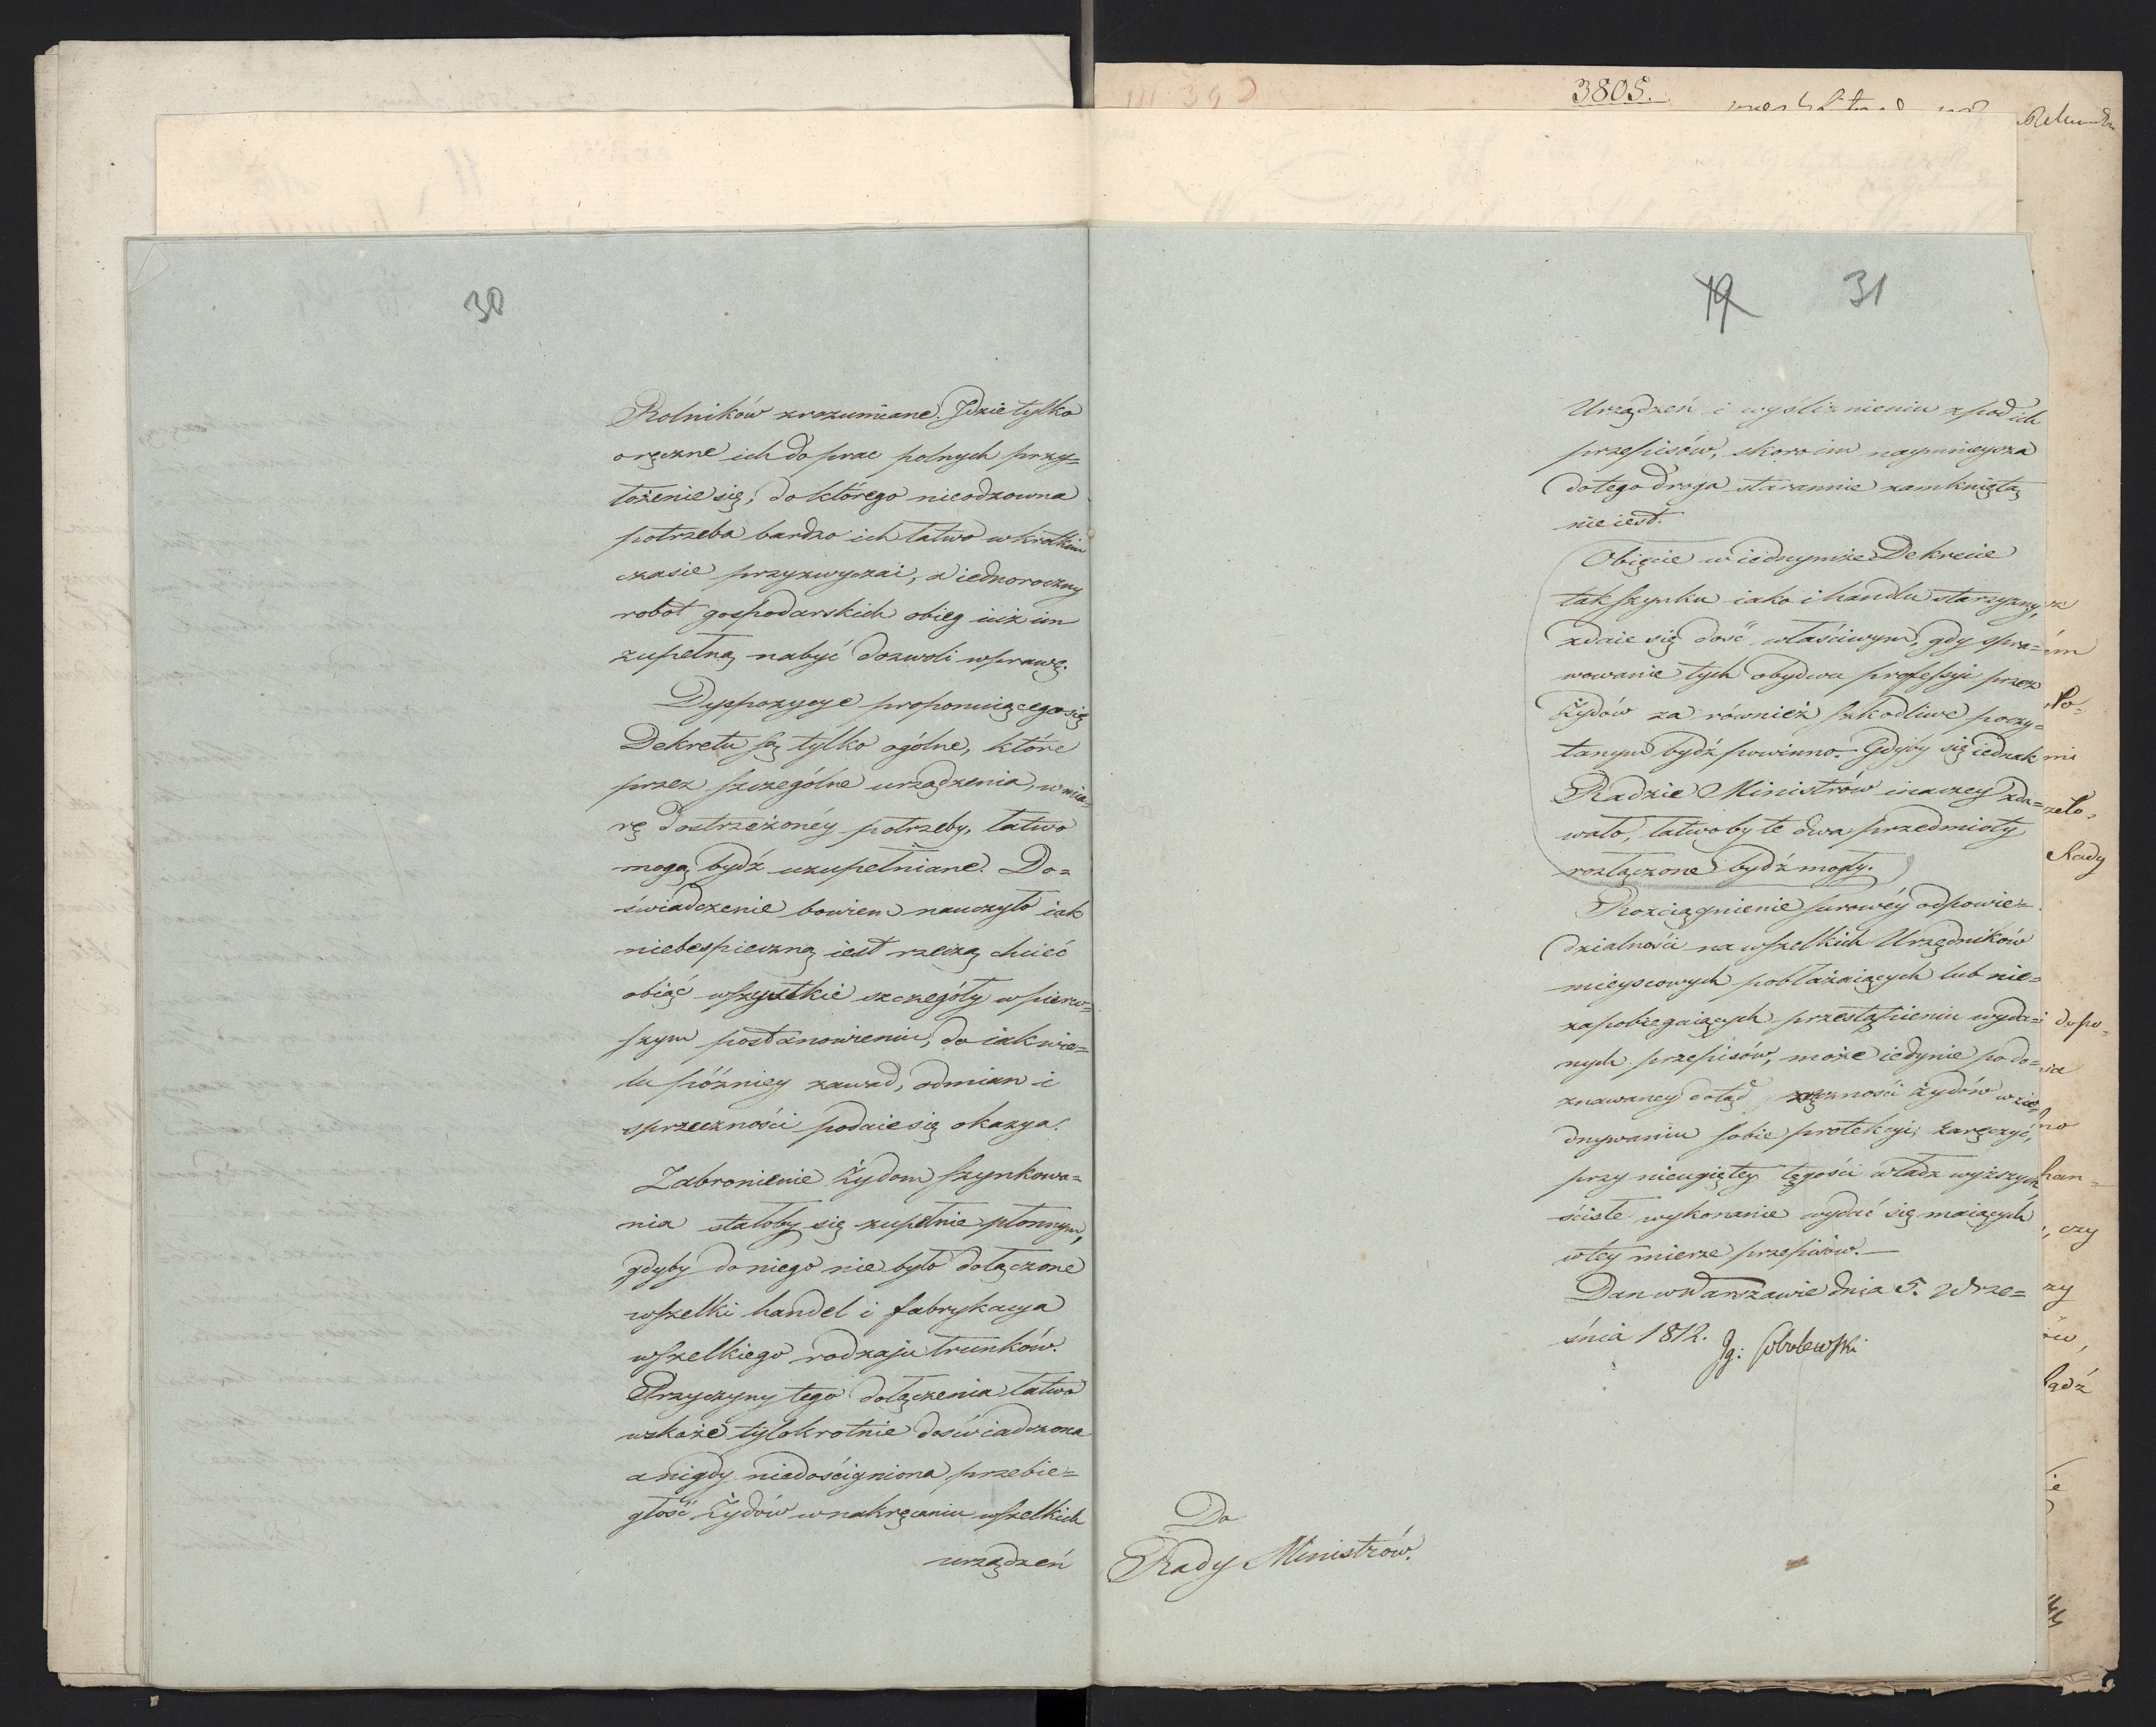 3805.
30
Rolników zrozumiane. Idzie tylko
o ręczne ich do prac polnych przy=
łożenie się, do którego nieodzowna
potrzeba bardzo ich łatwo w krótkim
czasie przyzwyczai, a iednoroczny
robot gospodarskich obieg iuż im
zupełną nabyć dozwoli wprawę.
Dyspozycye proponuiącego się
Dekretu są tylko ogólne, które
przez szczególne urządzenia, w mia=
rę dostrzeżonéy potrzeby, łatwo
mogą bydź uzupełniane. Do=
świadczenie bowiem nauczyło iak
niebespieczną iest rzeczą chcieć
obiąć wszystkie szczegóły w pierw=
szym postanowieniu, do iak wie=
lu późniey zawad, odmian i
sprzeczności podaie się okazya.
Zabronienie Żydom szynkowa=
nia stałoby się zupełnie płonnym,
gdyby do niego nie było dołączone
wszelki handel i fabrykacya
wszelkiego rodzaju trunków.
Przyczyny tego dołączenia łatwo
wskaże tylokrotnie doświadczona
a nigdy niedościgniona przebie=
głość Żydów w nakręcaniu wszelkich
urządzeń
19 31
Urządzeń i wyśliznieniu z pod ich
przepisów, skoro im naymnieysza
do tego droga starannie zamkniętą
nie iest.
Obięcie w iednymże Dekrecie
tak szynku iako i handlu starzyzny,
zdaie się dość właściwym, gdy spra=
wowanie tych obydwu professyi przez
Żydów za również szkodliwe poczy=
tanym bydź powinno. Gdyby się iednak
Radzie Ministrów inaczey zda=
wało, łatwoby te dwa przedmioty
rozłączone bydź mogły.
Rozciągnienie surowéy odpowie=
dzialności na wszelkich Urzędników
mieyscowych pobłażaiących lub nie=
zapobiegaiących przestąpieniu wyda=
nych przepisów, może iedynie po do=
znawaney dotąd zręczności żydów w zie=
dnywaniu sobie protekcyi, zaręczyć,
przy nieugiętey tęgości władz wyższych,
ściśle wykonanie wydać się maiących
w tey mierze przepisów.—
Dan w Warszawie dnia 5. Wrze=
śnia 1812.
Ig: Sobolewski
Do
Rady Ministrów.